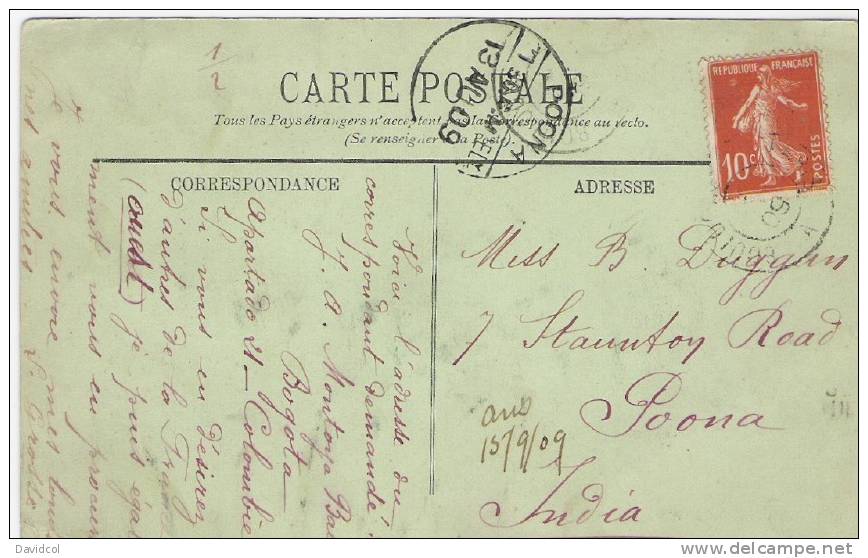 1/2
CARTE POSTALE
Tous les Pays étrangers n'acceptent pas la Correspondance au recto.
(Se renseigner à la Poste).
CORRESPONDANCE
ADRESSE
Voici l'adresse du
correspondant demandé.
J. A. Montoya
Bogota
Apartado 21 - Colombie
Si vous en désirez
d'autres de la
(ouest) je puis
ment vous en
Je vous envoie mes
Miss B. Duggan
7 Staunton Road
Poona
India
ans
15/9/09
POONA
7
13 AU 09
REPUBLIQUE FRANÇAISE
10c
POSTES
Davidcol
delcampe.net